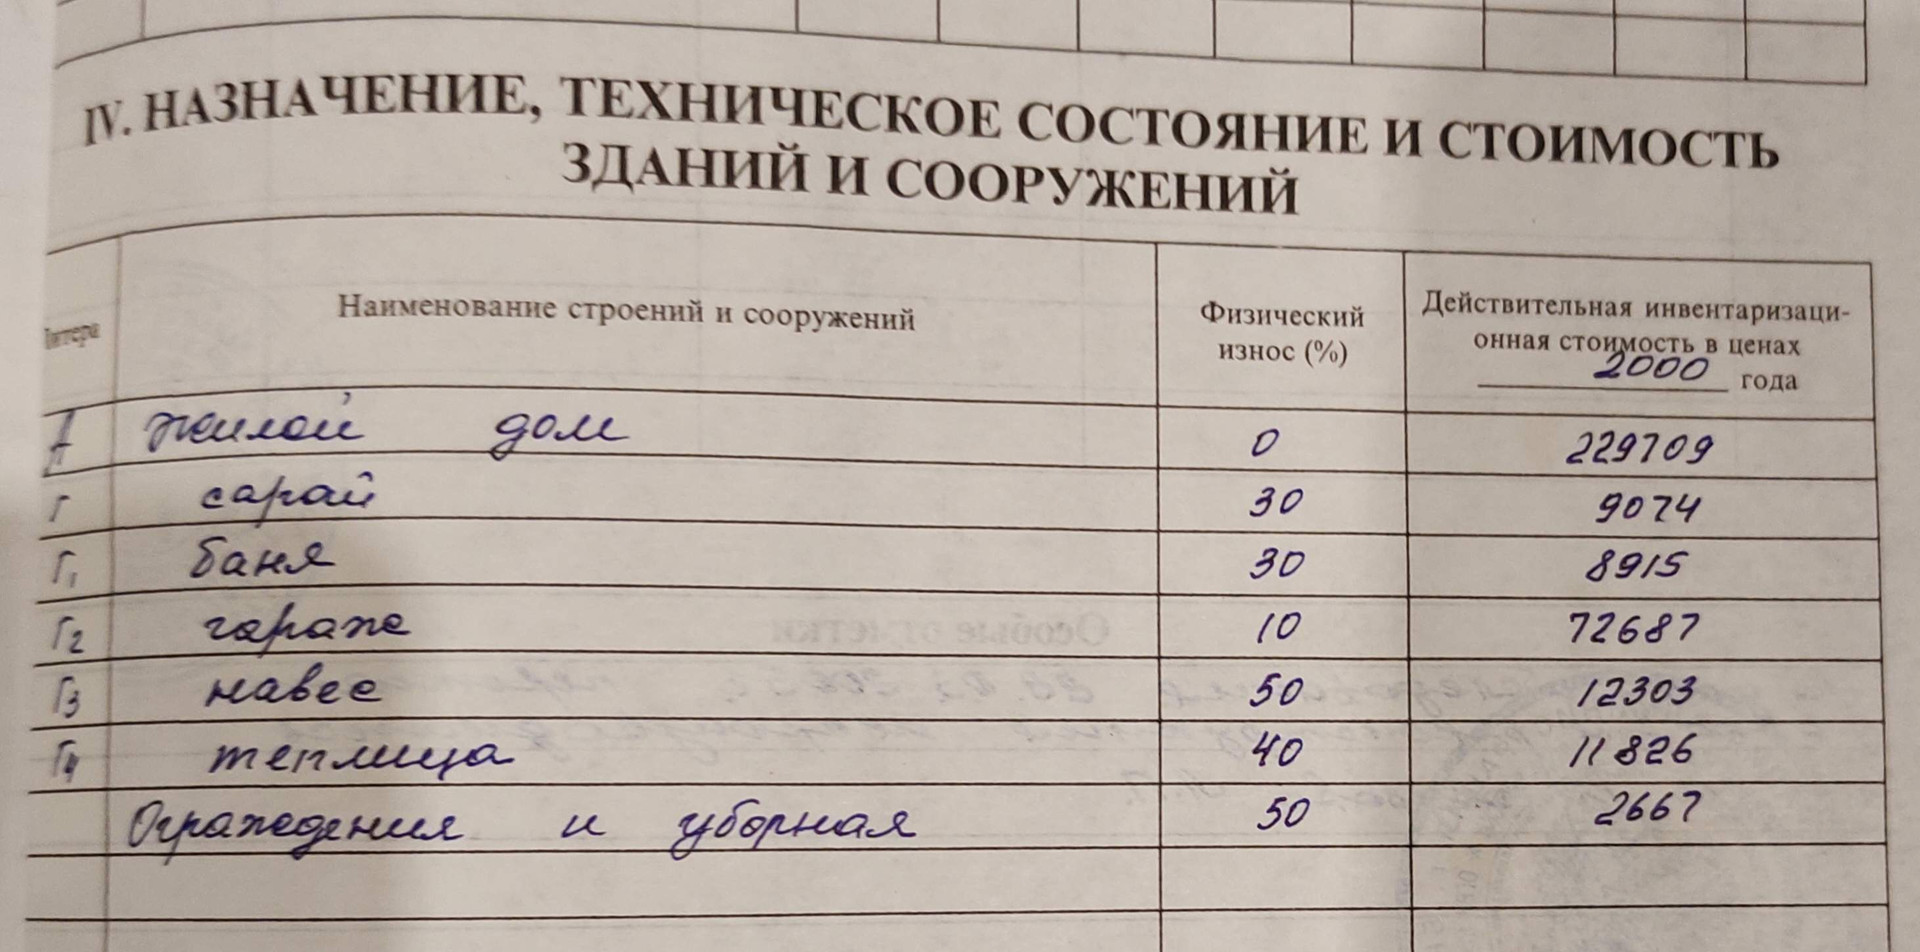 IV. НАЗНАЧЕНИЕ, ТЕХНИЧЕСКОЕ СОСТОЯНИЕ И СТОИМОСТЬ
ЗДАНИЙ И СООРУЖЕНИЙ
Литера
Наименование строений и сооружений
Физический
износ (%)
Действительная инвентаризаци-
онная стоимость в ценах
2000 года
А жилой дом 0 229709
Г сарай 30 9074
Г1 баня 30 8915
Г2 гараж 10 72687
Г3 навес 50 12303
Г4 теплица 40 11826
Ограждения и уборная 50 2667